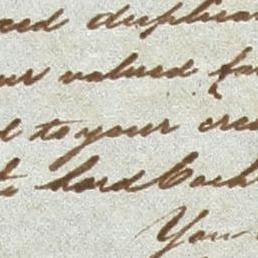 ced duplica
ur valued fa
d to your cre
hard Cash
You